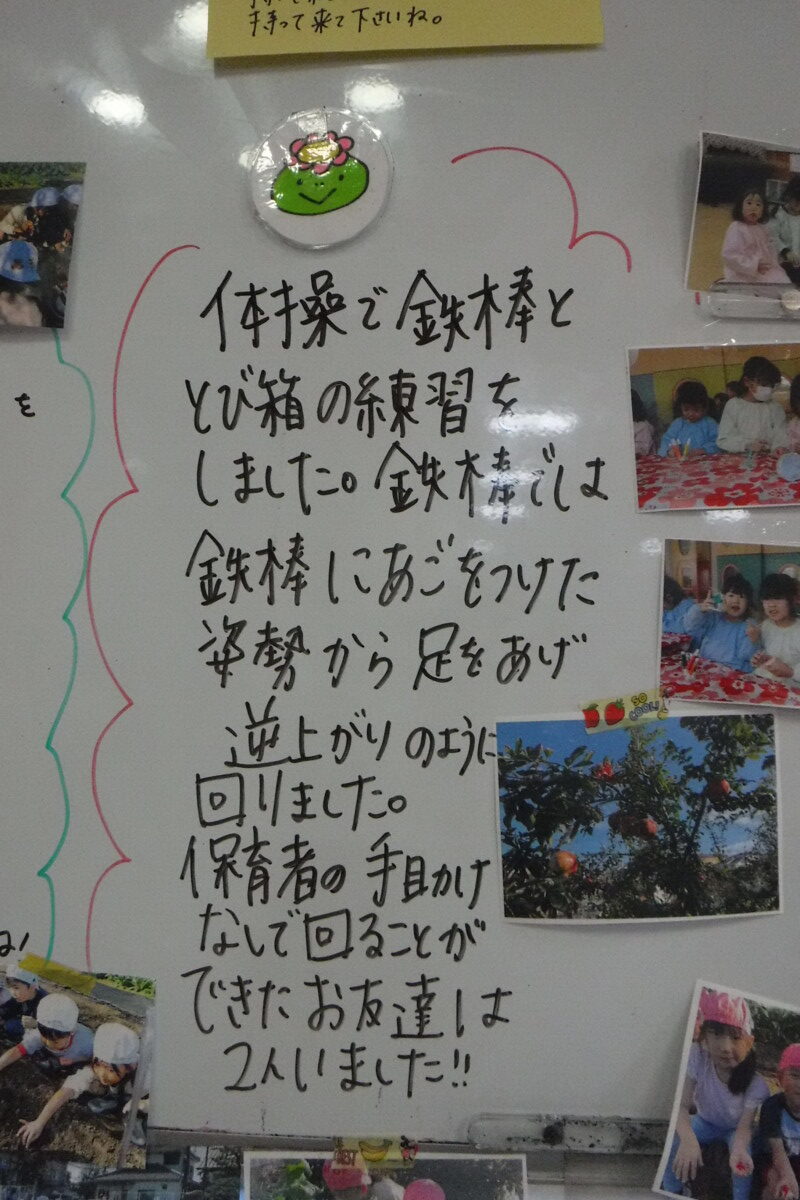 持って来て下さいね。
体操で鉄棒と
とび箱の練習を
しました。鉄棒では
鉄棒にあごをつけた
姿勢から足をあげ
逆上がりのように
回りました。
保育者の手助け
なしで回ることが
できたお友達は
2人いました!!
を
SO
COOL!